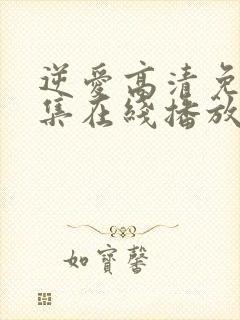 逆愛高清免
集在綫播放
如寶馨